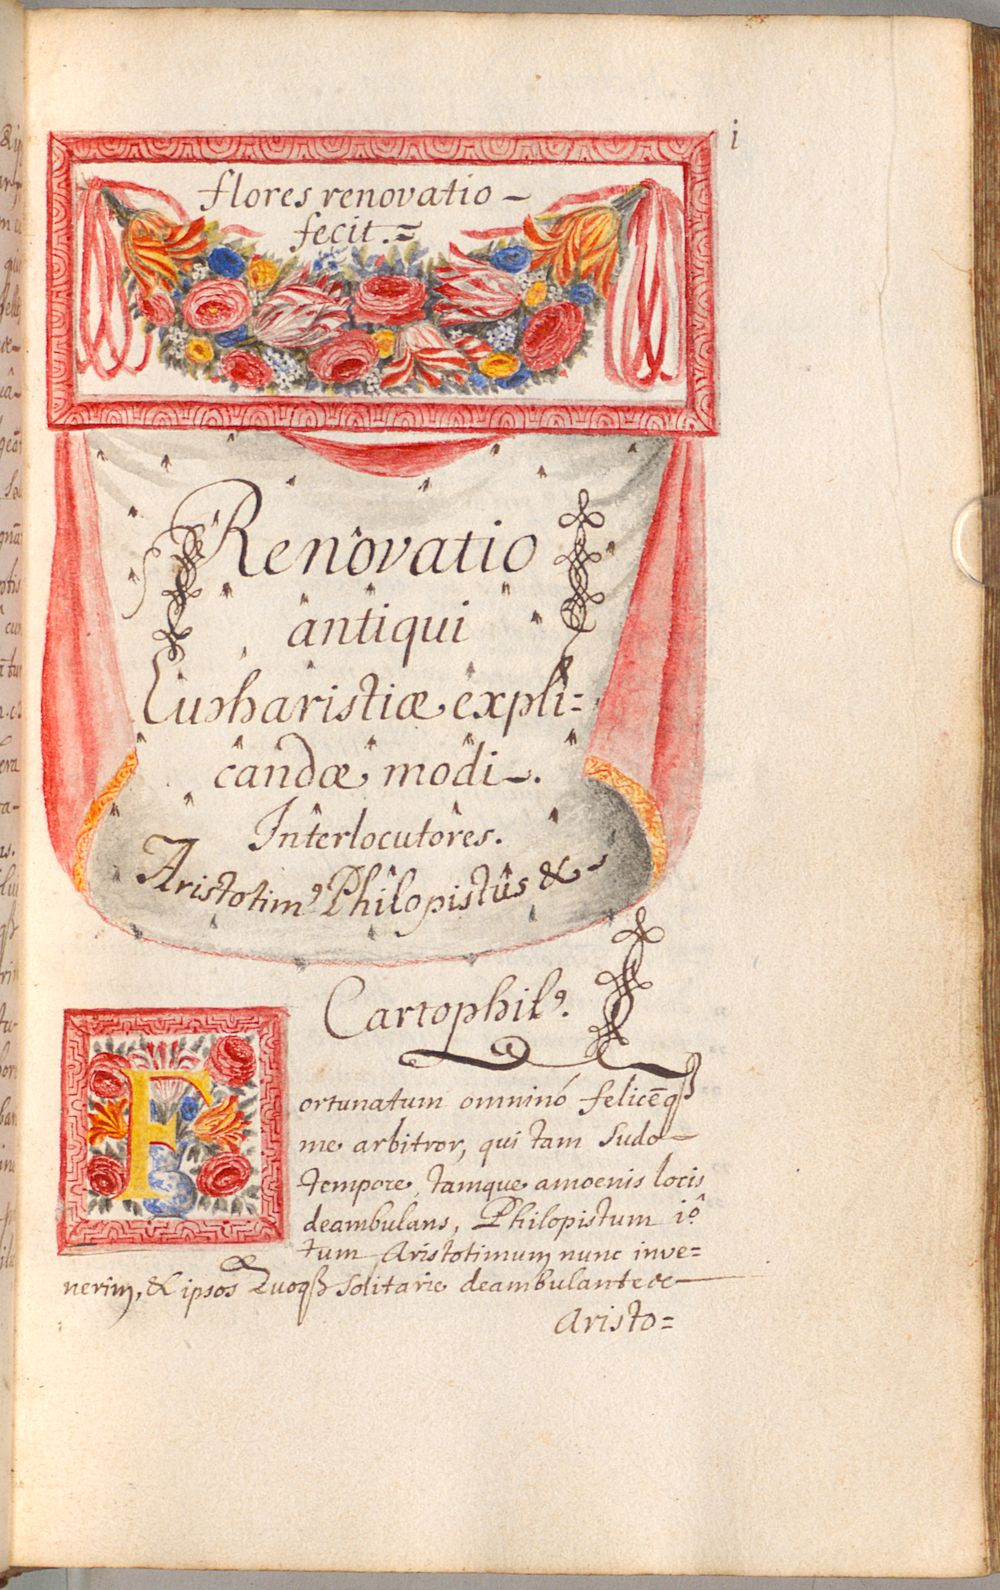 i
flores renovatio-
fecit.=
Renovatio
antiqui
Eucharistiæ expli=
candæ modi-.
Interlocutores.
Aristotimꝰ Philopistûs &
Cartophilꝰ.
Fortunatum omninó felicēqꝫ
me arbitror, qui tam sudo-
tempore, tamque amoenis locis
deambulans, Philopistum
tum Aristotimum nunc inve=
nerim, & ipsos quoqꝫ solitarie deambulantes
Aristo=